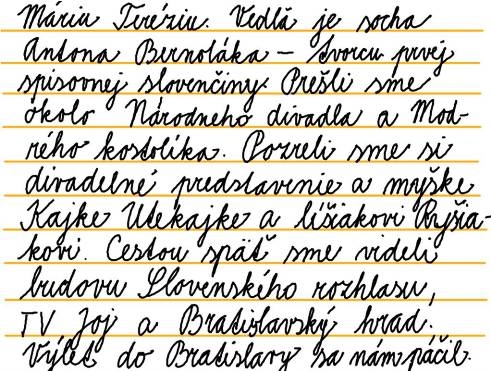 Máriu Teréziu. Vedľa je socha
Antona Bernoláka – tvorcu prvej
spisovnej slovenčiny. Prešli sme
okolo Národneho divadla a Mod-
rého kostolíka. Pozreli sme si
divadelné predstavenie a myške
Kajke Utekajke a líšiakovi Ryšia-
kovi. Cestou späť sme videli
budovu Slovenského rozhlasu,
TV Joj a Bratislavský hrad.
Výlet do Bratislavy sa nám páčil.